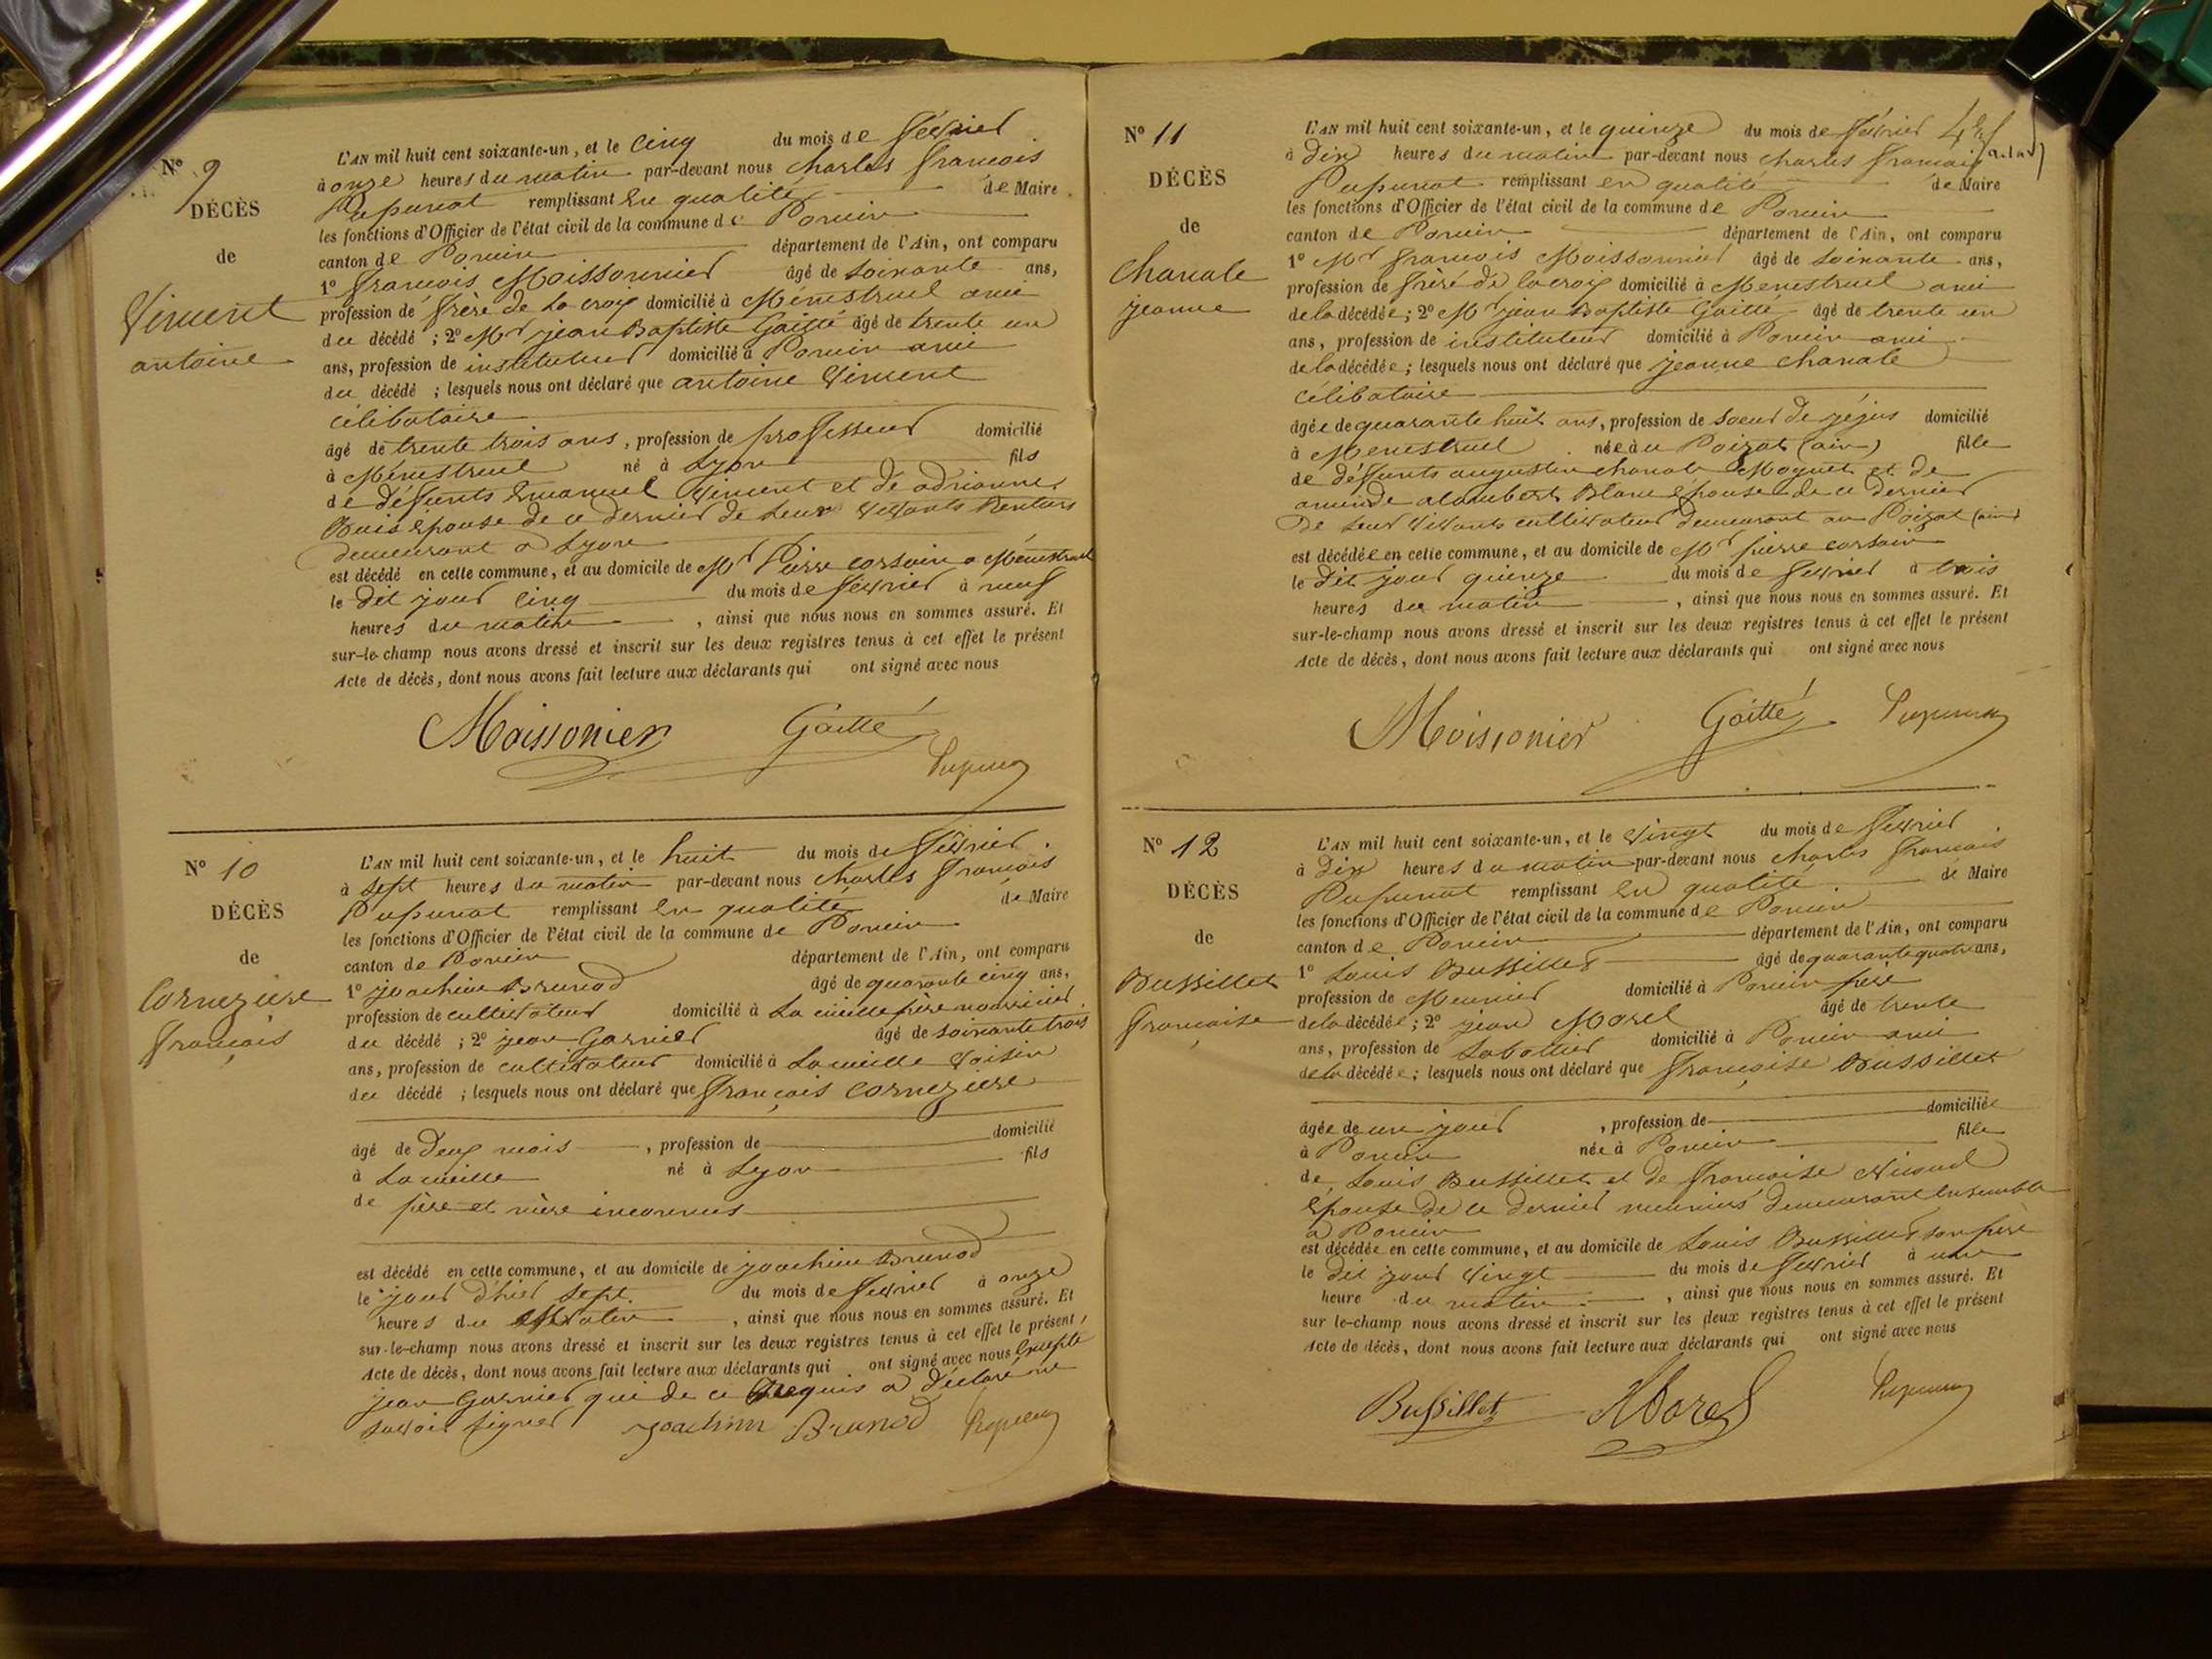 N° 9
DÉCÈS
de
Vincent
antoine
L'AN mil huit cent soixante-un, et le cinq du mois de février
à onze heures du matin par-devant nous charles françois
Pupunat remplissant en qualité de Maire
les fonctions d'Officier de l'état civil de la commune de Poncin
canton de Poncin département de l'Ain, ont comparu
1° françois Moissonnier âgé de soixante ans,
profession de frère de la croix domicilié à Ménestruel ami
du décédé ; 2° Mr jean Baptiste Gaitté âgé de trente un
ans, profession de instituteur domicilié à Poncin ami
du décédé ; lesquels nous ont déclaré que antoine Vincent
célibataire
âgé de trente trois ans, profession de professeur domicilié
à Ménestruel né à Lyon fils
de deffunts Emanuel Vincent et de adrianne
Buis épouse de ce dernier de leur vivants Rentiers
demeurant a Lyon
est décédé en cette commune, et au domicile de Mr Pierre corsain a Ménestruel
le dit jour cinq du mois de février à neuf
heures du matin , ainsi que nous nous en sommes assuré. Et
sur-le-champ nous avons dressé et inscrit sur les deux registres tenus à cet effet le présent
Acte de décès, dont nous avons fait lecture aux déclarants qui ont signé avec nous
Moissonier Gaitté
Pupunat
N° 10
DÉCÈS
de
Corneziere
françois
L'AN mil huit cent soixante-un, et le huit du mois de février
à sept heures du matin par-devant nous charles françois
Pupunat remplissant en qualité de Maire
les fonctions d'Officier de l'état civil de la commune de Poncin
canton de Poncin département de l'Ain, ont comparu
1° joachim Brunod âgé de quarante cinq ans,
profession de cultivateur domicilié à La cueille père nourricier
du décédé ; 2° jean Garnier âgé de soixante trois
ans, profession de cultivateur domicilié à Lacueille voisin
du décédé ; lesquels nous ont déclaré que françois Corneziere
âgé de deux mois , profession de domicilié
à Lacueille né à Lyon fils
de père et mère inconnus
est décédé en cette commune, et au domicile de joachim Brunod
le jour d'hier sept du mois de février à onze
heures du matin , ainsi que nous nous en sommes assuré. Et
sur-le-champ nous avons dressé et inscrit sur les deux registres tenus à cet effet le présent
Acte de décès, dont nous avons fait lecture aux déclarants qui ont signé avec nous excepté
jean Garnier qui de ce Requis a déclaré ne
savoir signer Joachim Brunod Pupunat
N° 11
DÉCÈS
de
Chanale
jeanne
L'AN mil huit cent soixante-un, et le quinze du mois de février
à dix heures du matin par-devant nous charles françois
Pupunat remplissant en qualité de Maire
les fonctions d'Officier de l'état civil de la commune de Poncin
canton de Poncin département de l'Ain, ont comparu
1° Mr françois Moissonnier âgé de soixante ans,
profession de frère de la croix domicilié à Menestruel ami
de la décédée ; 2° Mr jean Baptiste Gaitté âgé de trente un
ans, profession de instituteur domicilié à Poncin ami
de la décédée ; lesquels nous ont déclaré que jeanne chanale
célibataire
âgée de quarante huit ans, profession de soeur de jésus domicilié
à Menestruel née au Poizat (ain) fille
de deffunts augustin chanale Moguet et de
alombert Blanc épouse de ce dernier
De leur vivants cultivateur demeurant au Poizat (ain)
est décédée en cette commune, et au domicile de Mr pierre corsain
le dit jour quinze du mois de février à trois
heures du matin , ainsi que nous nous en sommes assuré. Et
sur-le-champ nous avons dressé et inscrit sur les deux registres tenus à cet effet le présent
Acte de décès, dont nous avons fait lecture aux déclarants qui ont signé avec nous
Moissonier Gaitté Pupunat
N° 12
DÉCÈS
de
Bussillet
françoise
L'AN mil huit cent soixante-un, et le vingt du mois de février
à dix heures du matin par-devant nous charles françois
Pupunat remplissant en qualité de Maire
les fonctions d'Officier de l'état civil de la commune de Poncin
canton de Poncin département de l'Ain, ont comparu
1° Louis Bussillet âgé de quarante quatre ans,
profession de Meunier domicilié à Poncin père
de la décédée ; 2° jean Morel âgé de trente
ans, profession de Sabottier domicilié à Poncin ami
de la décédée ; lesquels nous ont déclaré que françoise Bussillet
âgée de un jour , profession de domiciliée
à Poncin née à Poncin fille
de Louis Bussillet et de françoise Nicoud
épouse de ce dernier meuniers demeurant ensemble
a Poncin
est décédée en cette commune, et au domicile de Louis Bussillet son père
le dit jour vingt du mois de février à une
heure du matin , ainsi que nous nous en sommes assuré. Et
sur le-champ nous avons dressé et inscrit sur les deux registres tenus à cet effet le présent
Acte de décès, dont nous avons fait lecture aux déclarants qui ont signé avec nous
Bussillet Morel Pupunat